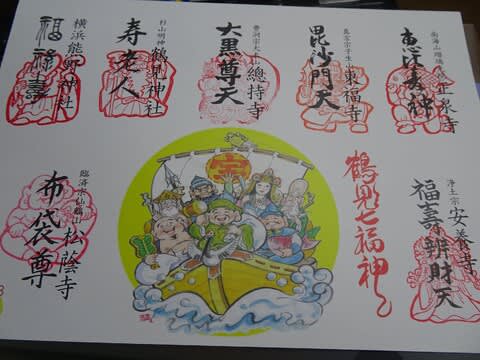 正泉寺
恵比寿神
真言宗
東福寺
毘沙門天
曹洞宗大本山
總持寺
大黒尊天
杉山明神
鶴見神社
寿老人
横浜熊野神社
福禄寿
宝
鶴見七福神
浄土宗
安養寺
福壽辨財天
臨済宗
松蔭寺
布袋尊